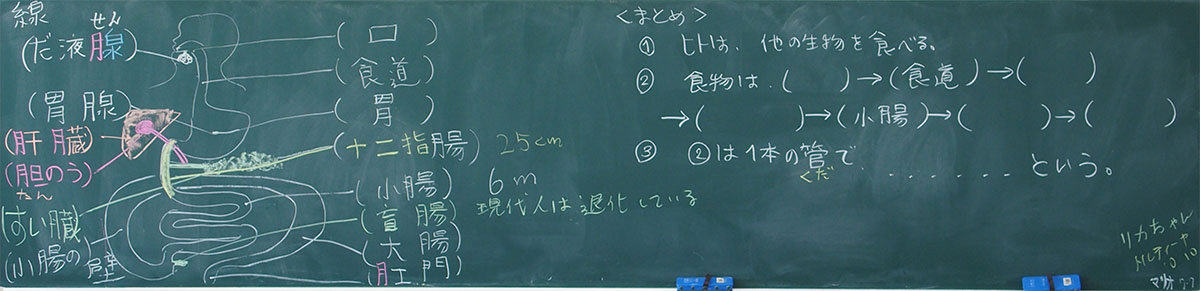 線
せん
(だ液腺)
(胃腺)
(肝臓)
(胆のう)
たん
(すい臓)
(小腸の壁)
(口)
(食道)
(胃)
(十二指腸) 25cm
(小腸) 6m
(盲腸) 現代人は退化している
(大腸)
(肛門)
<まとめ>
① ヒトは、他の生物を食べる。
② 食物は、(　　)→(食道)→(　　)
→(　　)→(小腸)→(　　)→(　　)
③ ②は1本の管で、......という。
くだ
リカちゃん